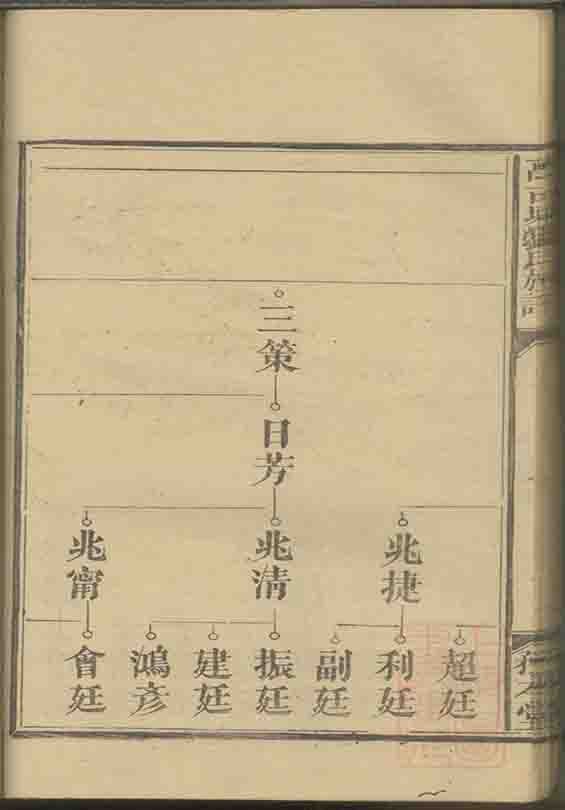 三策
日芳
兆捷
兆清
兆甯
超廷
利廷
副廷
振廷
建廷
鴻彥
會廷